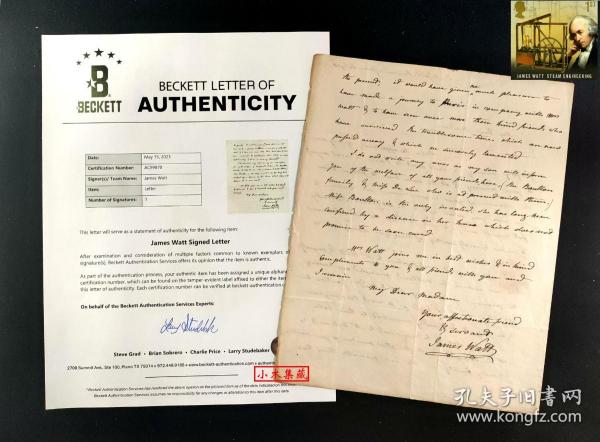 B
BECKETT
BECKETT LETTER OF
AUTHENTICITY
Date: May 15, 2023
Certification Number:
Signer(s)/ Team Name: James Watt
Item: Letter
Number of Signatures: 1
This letter will serve as a statement of authenticity for the following item:
James Watt Signed Letter
After examination and consideration of multiple factors common to known exemplars o
signature(s), Beckett Authentication Services offers its opinion that the item is authentic.
As part of the authentication process, your authentic item has been assigned a unique alphan
certification number, which can be found on the tamper-evident label affixed to either the item
this letter of authenticity. Each certification number can be verified at beckett-authentication.c
On behalf of the Beckett Authentication Services Experts:
Steve Grad • Brian Sobrero • Charlie Price • Larry Studebaker
小木集藏
1st
JAMES WATT STEAM ENGINEERING
the pound, it would have given me much pleasure to
have made a journey to Paris in company with Mrs
Watt & to have seen once more those kind friends who
have survived the troublesome times which are now
passed away & which we sincerely lamented
I do not write any news as my son will inform
you of the welfare of all your friends here;
Miss Boulton is the only invalid, she has long been
confined by a disease in her knee which does not
promise to be soon cured
Mrs Watt joins me in best wishes & in kind
compliments to you & all friends with you and
I remain
My Dear Madame
Your affectionate friend
& servant
James Watt
孔夫子旧书网
kongfz.com